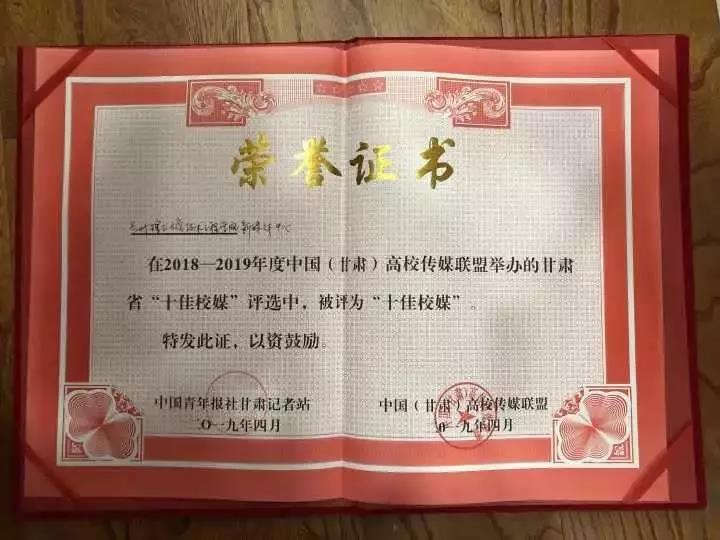 荣誉证书
兰州理工大学技术工程学院新媒体中心
在2018—2019年度中国（甘肃）高校传媒联盟举办的甘肃
省“十佳校媒”评选中，被评为“十佳校媒”。
特发此证，以资鼓励。
中国青年报社甘肃记者站
中国（甘肃）高校传媒联盟
二〇一九年四月
〇一九年四月